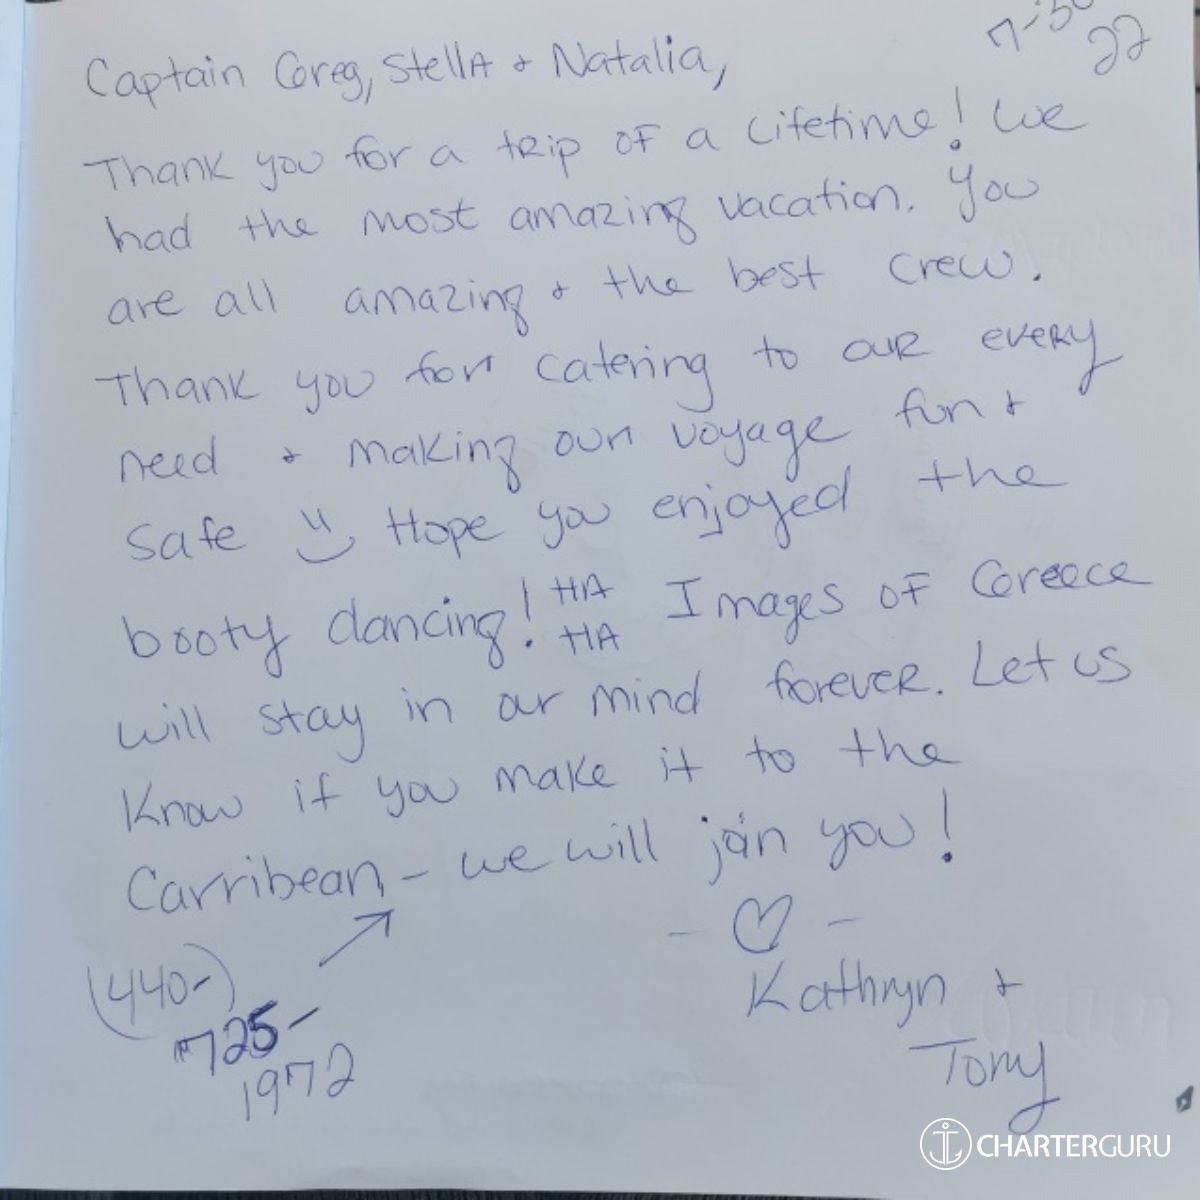 7-30
22
Captain Greg, Stella & Natalia,
Thank you for a trip of a lifetime! We
had the most amazing vacation. You
are all amazing & the best crew.
Thank you for catering to our every
need & making our voyage fun &
safe Hope you enjoyed the
booty dancing! HA HA Images of Greece
will stay in our mind forever. Let us
know if you make it to the
Carribean - we will join you!
Kathryn &
Tony
(440-)
725-
1972
CHARTERGURU